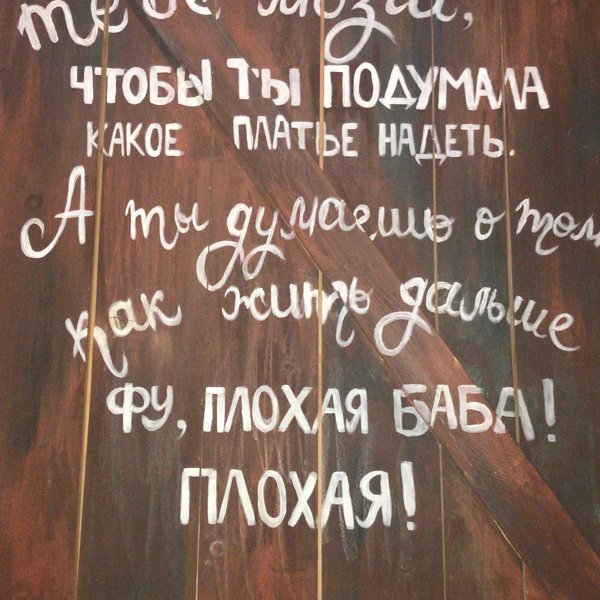 тебе мозги,
ЧТОБЫ ТЫ ПОДУМАЛА
КАКОЕ ПЛАТЬЕ НАДЕТЬ.
А ты думаешь о том
как жить дальше
ФУ, ПЛОХАЯ БАБА!
ПЛОХАЯ!